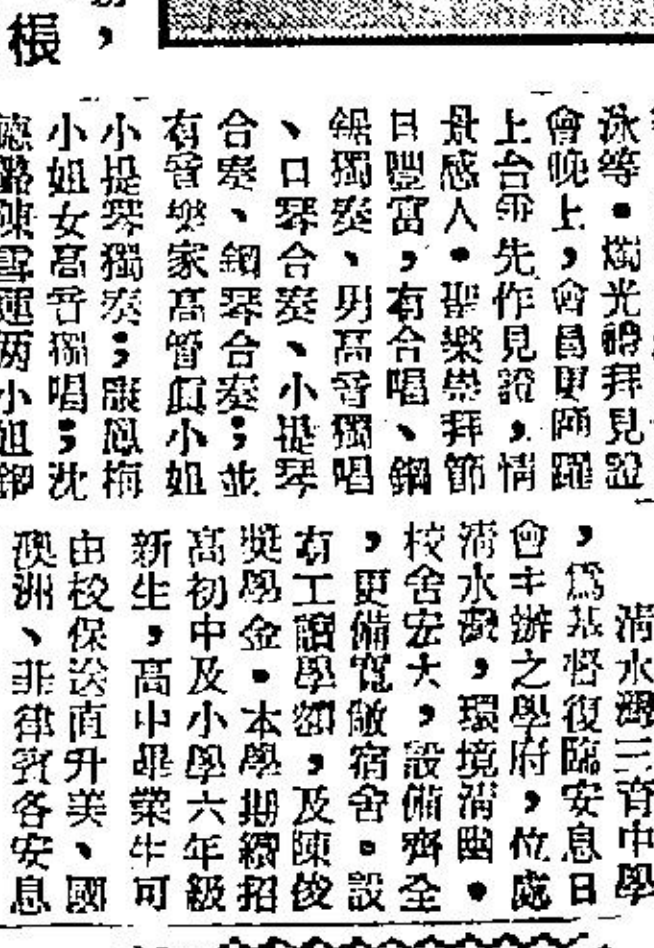 張，
泳等。燭光禮拜見證
會晚上，會員更踴躍
上台爭先作見證，情
景感人。聖樂崇拜節
目豐富，有合唱、鋼
鋸獨奏、男高音獨唱
、口琴合奏、小提琴
合奏、鋼琴合奏；並
有音樂家高管貞小姐
小提琴獨奏；張鳳梅
小姐女高音獨唱；沈
德璐陳雪蓮兩小姐鋼
清水灣三育中學
，為基督復臨安息日
會主辦之學府，位處
清水灣，環境清幽。
校舍宏大，設備齊全
，更備寬敞宿舍。設
有工讀學額，及陳俊
獎學金。本學期續招
高初中及小學六年級
新生，高中畢業生可
由校保送直升美、國
澳洲、菲律賓各安息